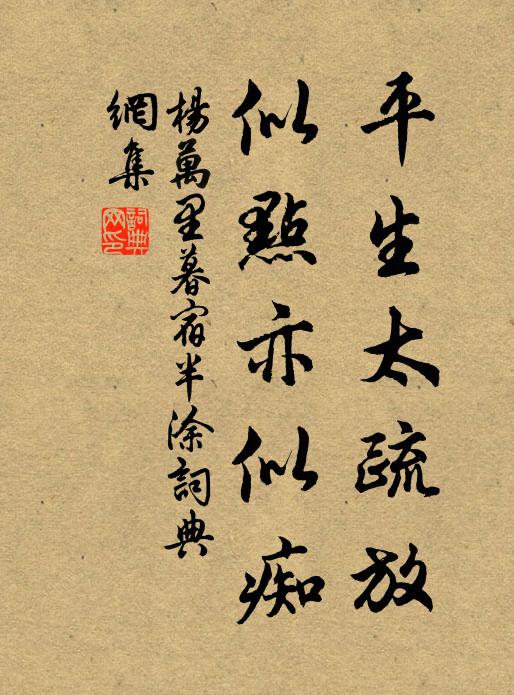 平生太疏放
似點亦似痴
楊萬里暮宿半涂詞典
網集
詞典
网印